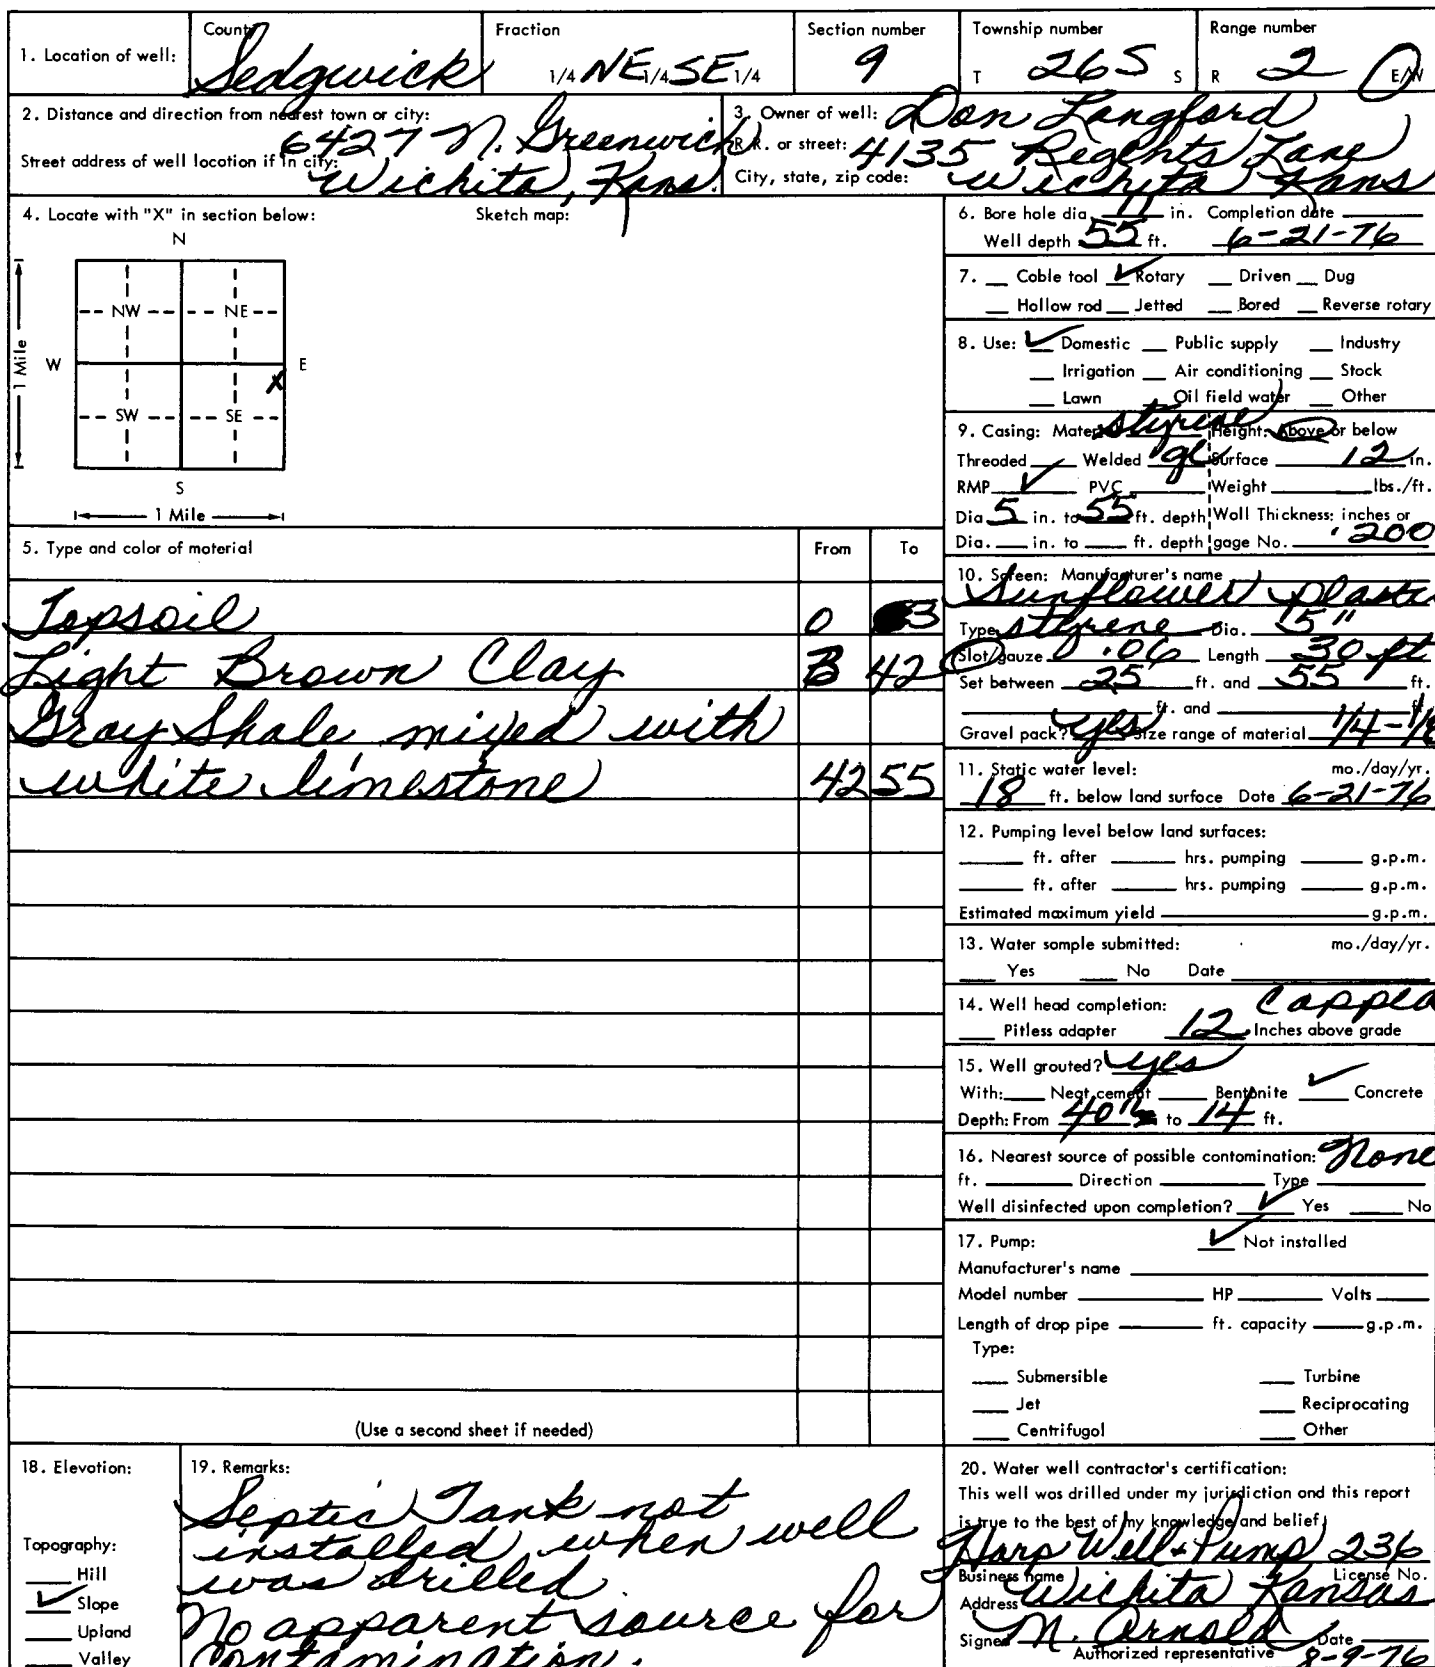 1. Location of well: County Sedgwick Fraction 1/4 NE 1/4 SE 1/4 Section number 9 Township number T 26S S Range number R 2 E/W
2. Distance and direction from nearest town or city: 6427 N. Greenwich
Street address of well location if in city: Wichita, Kans.
3. Owner of well: Don Langford
R.R. or street: 4135 Regents Lane
City, state, zip code: Wichita, Kans
4. Locate with "X" in section below: Sketch map:
N
NW NE
1 Mile W E
X
SW SE
S
1 Mile
5. Type and color of material From To
Topsoil 0 3
Light Brown Clay 3 42
Gray Shale mixed with
white limestone 42 55
(Use a second sheet if needed)
6. Bore hole dia. 11 in. Completion date
Well depth 55 ft. 6-21-76
7. Cable tool ✓ Rotary Driven Dug
Hollow rod Jetted Bored Reverse rotary
8. Use: ✓ Domestic Public supply Industry
Irrigation Air conditioning Stock
Lawn Oil field water Other
9. Casing: Material styrene Height: Above or below
Threaded Welded gl Surface 12 in.
RMP ✓ PVC Weight lbs./ft.
Dia. 5 in. to 55 ft. depth Wall Thickness: inches or
Dia. in. to ft. depth gage No. .200
10. Screen: Manufacturer's name
Sunflower Plastic
Type styrene Dia. 5"
Slot/gauze .06 Length 30 ft
Set between 25 ft. and 55 ft.
ft. and ft.
Gravel pack? yes Size range of material 1/4-1/8
11. Static water level: mo./day/yr.
18 ft. below land surface Date 6-21-76
12. Pumping level below land surfaces:
ft. after hrs. pumping g.p.m.
ft. after hrs. pumping g.p.m.
Estimated maximum yield g.p.m.
13. Water sample submitted: mo./day/yr.
Yes No Date
14. Well head completion: Capped
Pitless adapter 12 Inches above grade
15. Well grouted? yes
With: Neat cement Bentonite ✓ Concrete
Depth: From 40" to 14 ft.
16. Nearest source of possible contamination: None
ft. Direction Type
Well disinfected upon completion? ✓ Yes No
17. Pump: ✓ Not installed
Manufacturer's name
Model number HP Volts
Length of drop pipe ft. capacity g.p.m.
Type:
Submersible Turbine
Jet Reciprocating
Centrifugal Other
18. Elevation:
Topography:
Hill
✓ Slope
Upland
Valley
19. Remarks:
Septic Tank not
installed when well
was drilled.
No apparent source for
contamination.
20. Water well contractor's certification:
This well was drilled under my jurisdiction and this report
is true to the best of my knowledge and belief.
Harp Well & Pump 236
Business name License No.
Address Wichita Kansas
Signed M. Arnold Date 8-9-76
Authorized representative